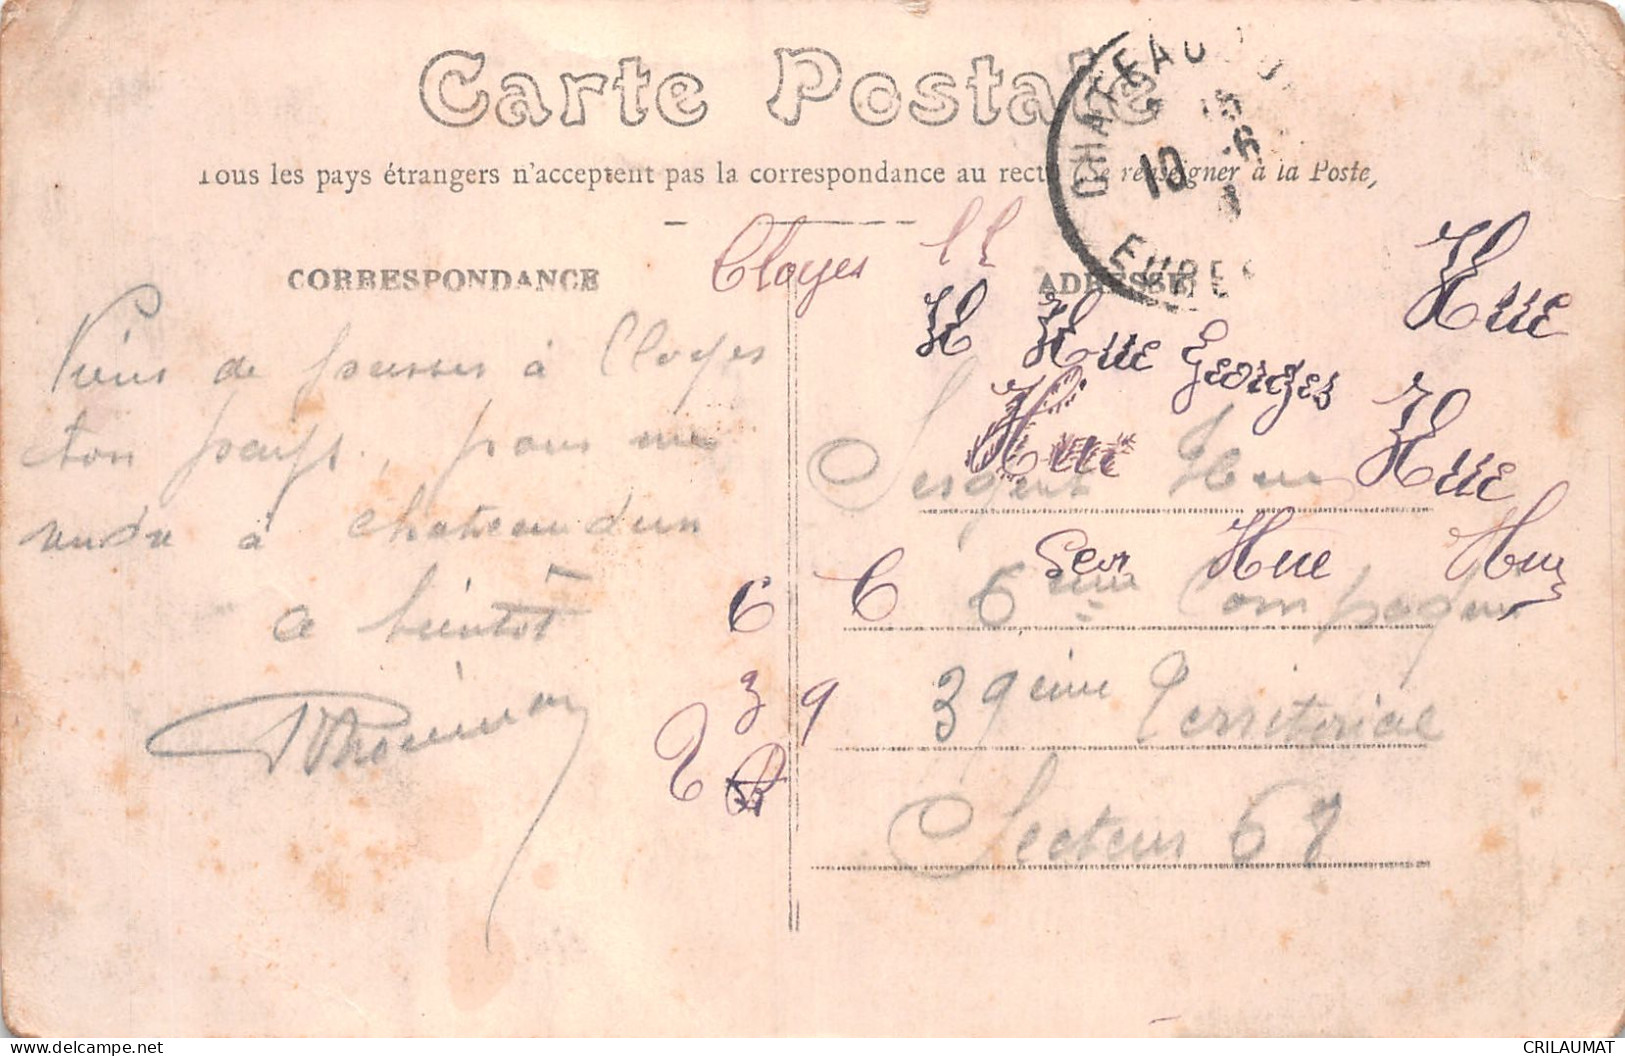 Carte Postale
Tous les pays étrangers n'acceptent pas la correspondance au recto (Se renseigner à la Poste,
CHATEAUDUN
10
EURE
CORRESPONDANCE
ADRESSE
Cloyes
Hue
H Hue Georges
Hue Hue
Viens de passer à Cloyes
ton pays, pour me
rendre à chateaudun
a bientôt
Sergent Hue
Ser Hue Hue
6 6
6eme Compagnie
3 9
39ème Territorial
Secteur 67
CRILAUMAT